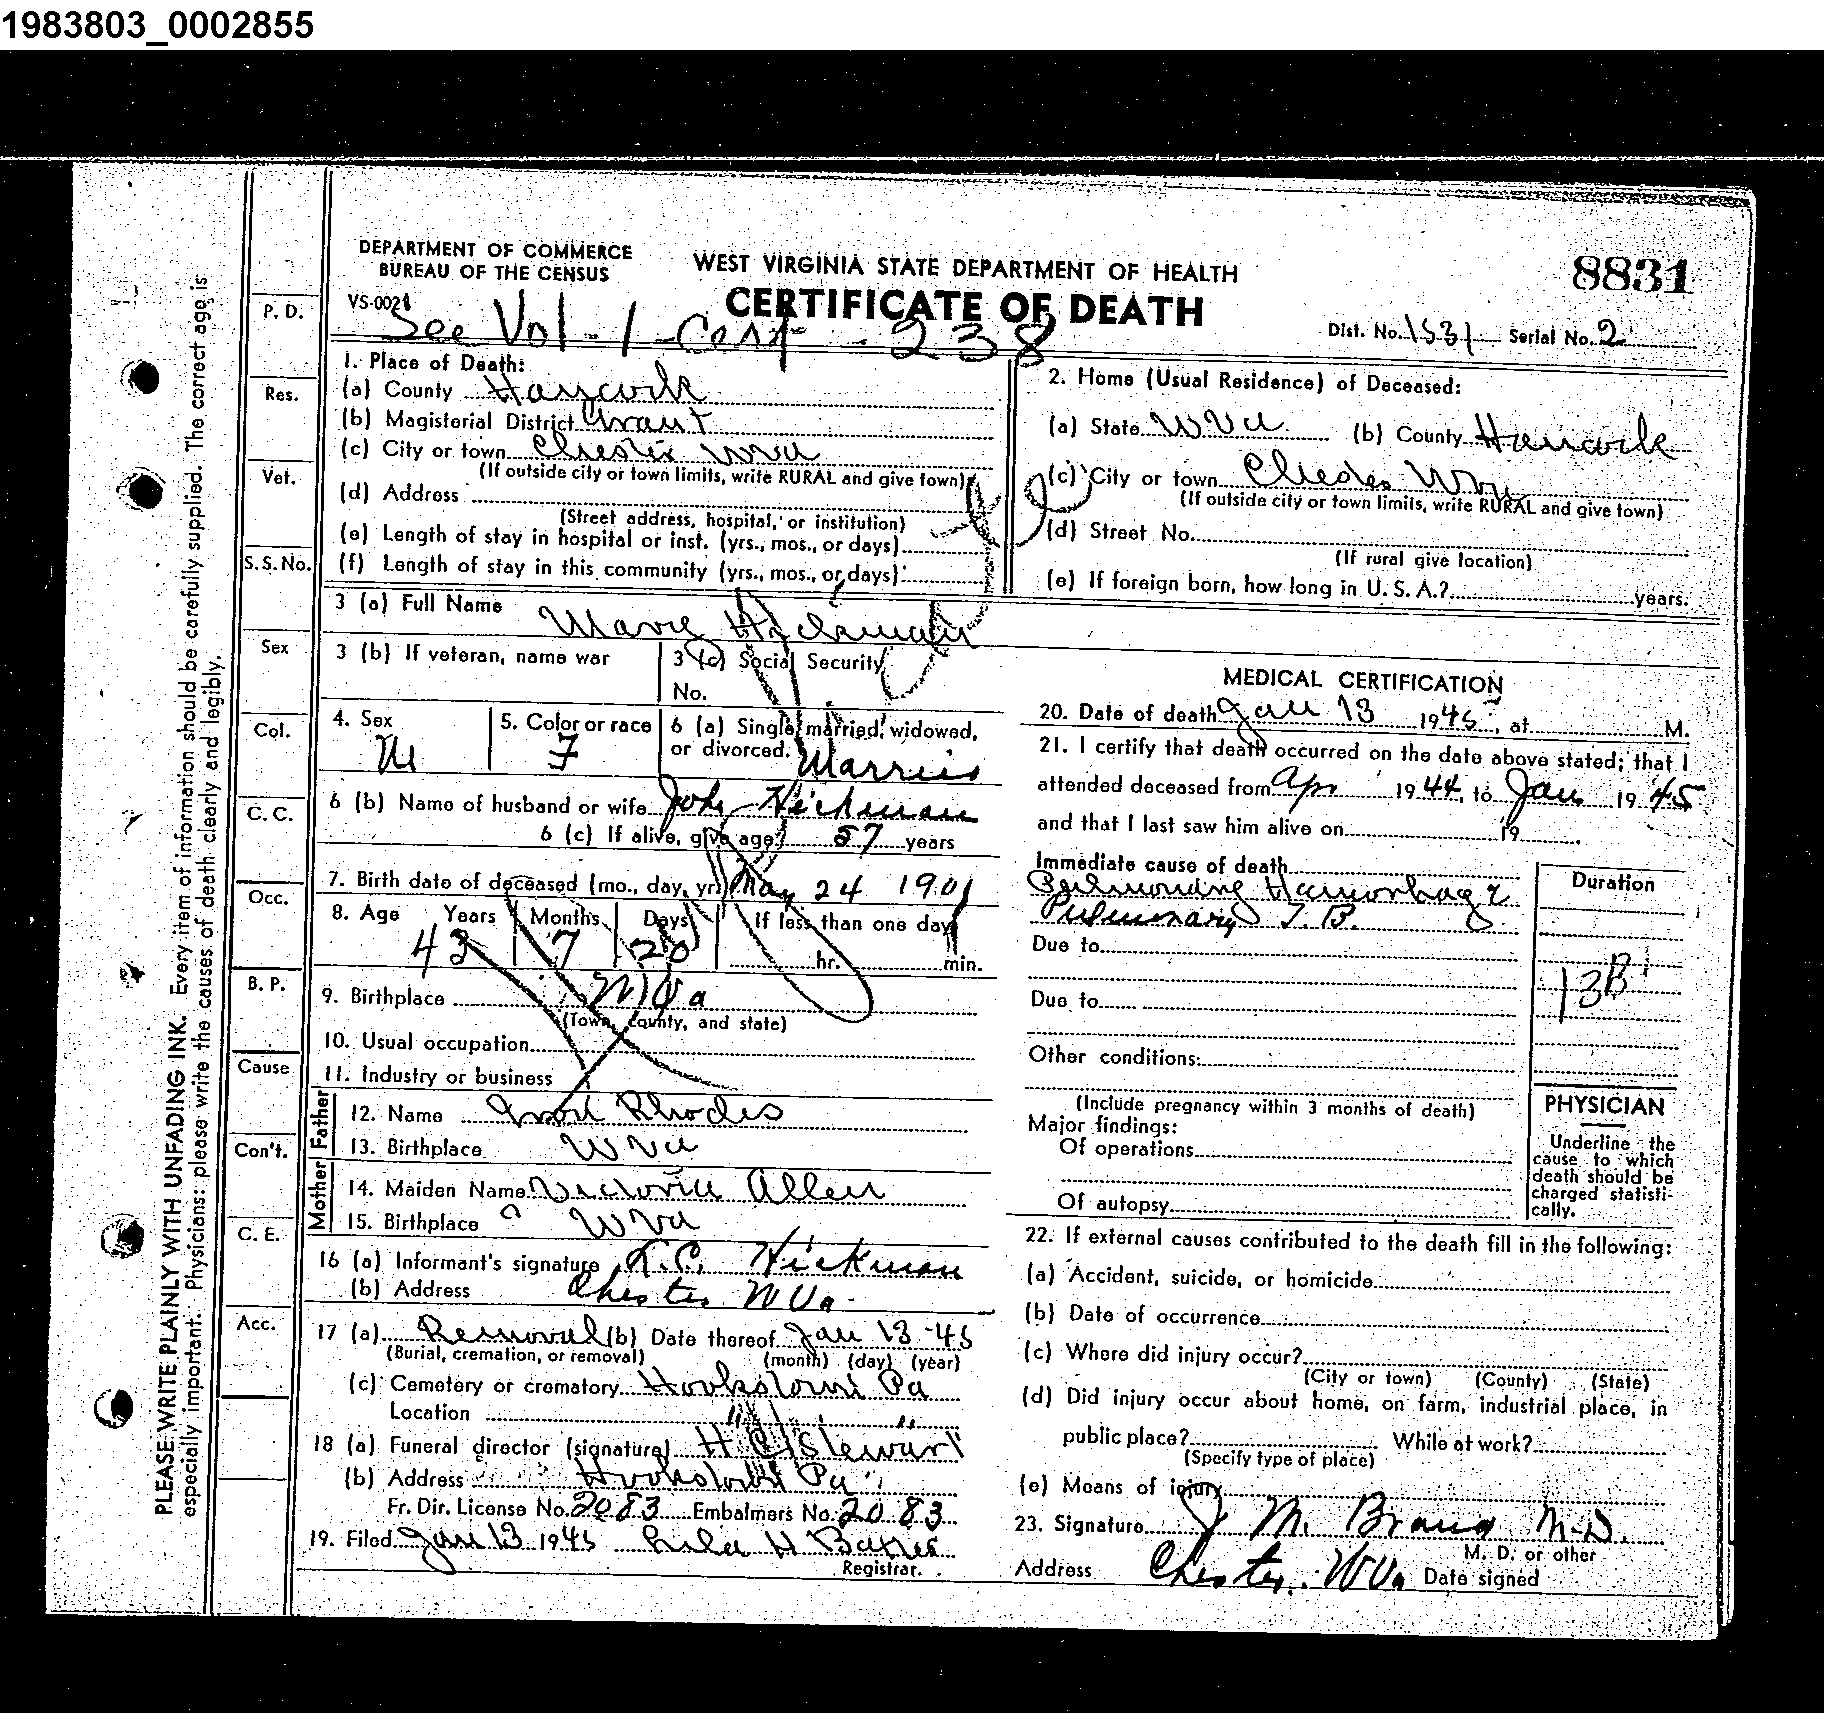 1983803_0002855
DEPARTMENT OF COMMERCE
BUREAU OF THE CENSUS
WEST VIRGINIA STATE DEPARTMENT OF HEALTH
CERTIFICATE OF DEATH
8831
VS-002
See Vol-1-Cert-238
Dist. No. 1531 Serial No. 2
1. Place of Death:
(a) County Hancock
(b) Magisterial District Grant
(c) City or town Chester WVa
(If outside city or town limits, write RURAL and give town)
(d) Address
(Street address, hospital, or institution)
(e) Length of stay in hospital or inst. (yrs., mos., or days)
(f) Length of stay in this community (yrs., mos., or days)
2. Home (Usual Residence) of Deceased:
(a) State WVa (b) County Hancock
(c) City or town Chester WVa
(If outside city or town limits, write RURAL and give town)
(d) Street No.
(If rural give location)
(e) If foreign born, how long in U. S. A.? years.
3 (a) Full Name Marie Hickman
3 (b) If veteran, name war
3 (c) Social Security
No.
4. Sex
M
5. Color or race
F
6 (a) Single, married, widowed,
or divorced. Married
6 (b) Name of husband or wife John Hickman
6 (c) If alive, give age 57 years
7. Birth date of deceased (mo., day, yr.) May 24 1901
8. Age Years Months Days If less than one day
43 7 20 hr. min.
9. Birthplace WVa
(Town, county, and state)
10. Usual occupation
11. Industry or business
Father
12. Name Rhodes
13. Birthplace WVa
Mother
14. Maiden Name Victoria Allen
15. Birthplace WVa
16 (a) Informant's signature K.C. Hickman
(b) Address Chester WVa
17 (a) Removal (b) Date thereof Jan 13-45
(Burial, cremation, or removal) (month) (day) (year)
(c) Cemetery or crematory Hookstown Pa
Location " "
18 (a) Funeral director (signature) H C Stewart
(b) Address Hookstown Pa
Fr. Dir. License No. 2083 Embalmers No. 2083
19. Filed Jan 13 1945 Lila H Baxter
Registrar.
MEDICAL CERTIFICATION
20. Date of death Jan 13 1945, at M.
21. I certify that death occurred on the date above stated; that I
attended deceased from Apr 1944, to Jan 1945
and that I last saw him alive on 19
Immediate cause of death
Pulmonary Hamorhage
Pulmonary T.B.
Due to
Due to
Other conditions:
(Include pregnancy within 3 months of death)
Major findings:
Of operations
Of autopsy
Duration
13B
PHYSICIAN
Underline the
cause to which
death should be
charged statisti-
cally.
22. If external causes contributed to the death fill in the following:
(a) Accident, suicide, or homicide
(b) Date of occurrence
(c) Where did injury occur?
(City or town) (County) (State)
(d) Did injury occur about home, on farm, industrial place, in
public place? While at work?
(Specify type of place)
(e) Means of injury
23. Signature J M. M.D.
M. D. or other
Address Chester, WVa Date signed
P. D.
Res.
Vet.
S.S.No.
Sex
Col.
C. C.
Occ.
B. P.
Cause
Con't.
C. E.
Acc.
PLEASE WRITE PLAINLY WITH UNFADING INK. Every item of information should be carefully supplied. The correct age is
especially important. Physicians: please write the causes of death clearly and legibly.